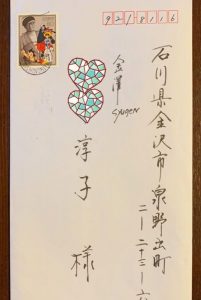 921-8116
石川県金沢市泉野出町
二ー二十三ー六
金澤
syugen
淳子様